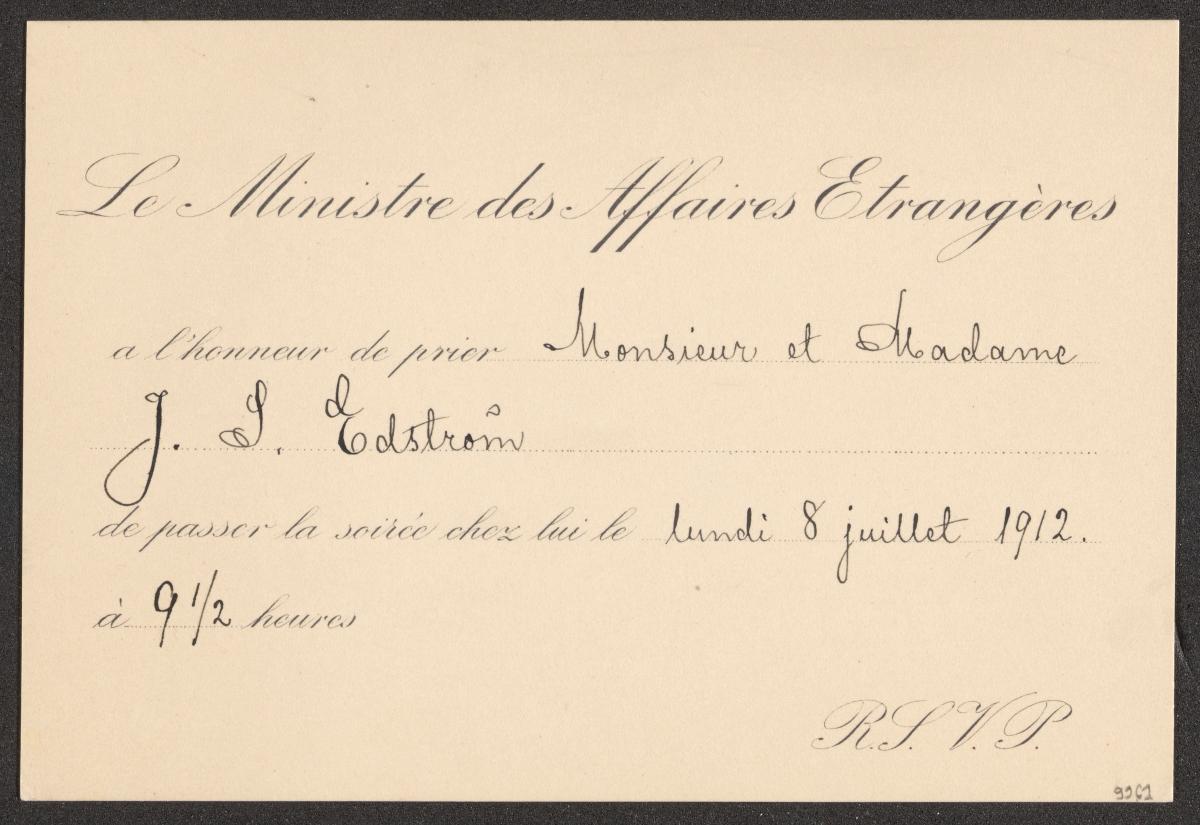 Le Ministre des Affaires Etrangères
a l'honneur de prier Monsieur et Madame
J. S. Edström
de passer la soirée chez lui le lundi 8 juillet 1912.
à 9 1/2 heures
R.S.V.P.